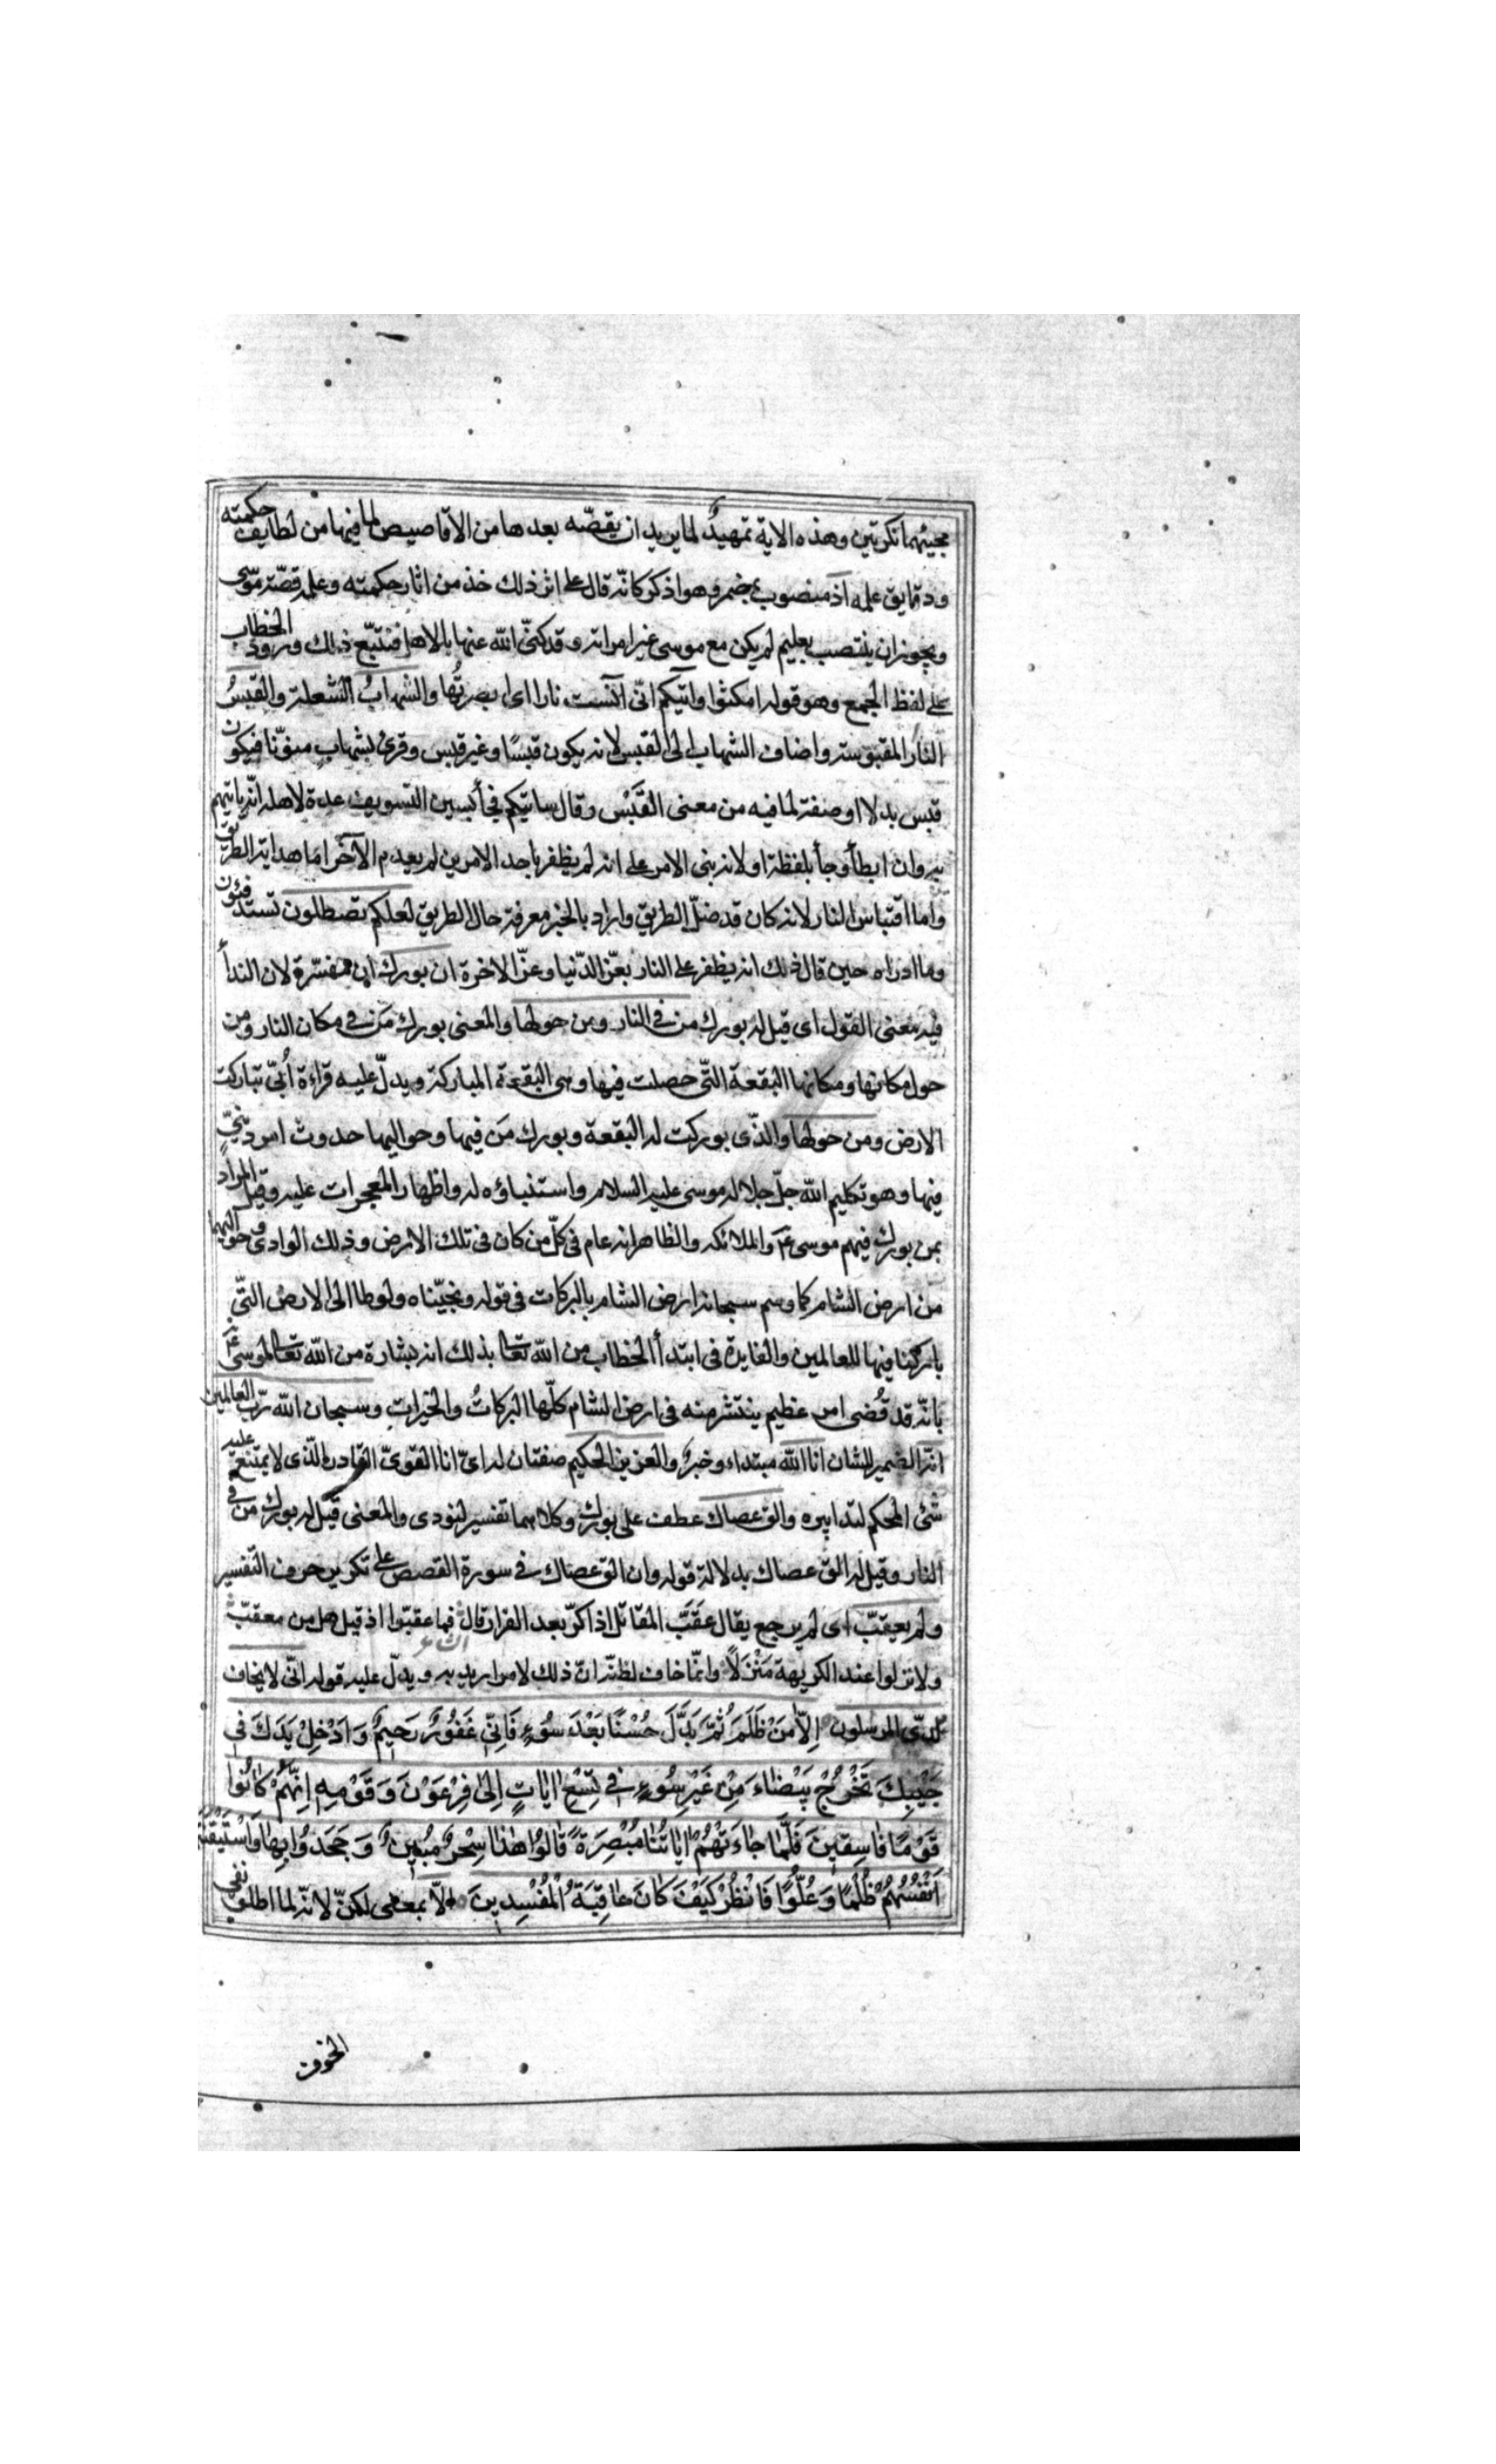 مجيئهما نكرتين وهذه الاية تمهيدٌ لما يريد ان يقصّه بعدها من الاقاصيص لما فيها من لطايف حكمته
ودقايق علمه اذ منصوب بمضمر وهو اذكر كانّه قال على اثر ذلك خذ من اثار حكمته وعلمه قصّة موسى
ويجوز ان ينتصب بعليم لم يكن مع موسى غير امراته وقد كنّى الله عنها بالاهل فتتبّع ذلك ورود الخطاب
على لفظ الجمع وهو قوله امكثوا واتيكم انّى آنست نارا اى ابصرتُها والشهابُ الشعلة والقبسُ
النار المقبوسة واضاف الشهاب الى القبس لانه يكون قبسًا وغير قبس وقرئ بشهابٍ منوّنا فيكون
قبس بدلا او صفة لما فيه من معنى القَبْس وقال ساتيكم فجأ بسين التسويف عدة لاهله انّه ياتيهم
به وان ابطأ وجأ بلفظة او لانه بنى الامر على انه لم يظفر باحد الامرين لم يعدم الآخر اما هداية الطريق
واما اقتباس النار لانه كان قد ضلّ الطريق واراد بالخبر معرفة حال الطريق لعلكم تصطلون تستدفئون
وما ادراه حين قال ذلك انه يظفر على النار بعزّ الدّنيا وعزّ الاخرة ان بورك ان مفسّرة لان الندأ
فيه معنى القول اى قيل له بورك من فى النار ومن حولها والمعنى بورك مَن فى مكان النار ومن
حول مكانها ومكانها البقعة التّى حصلت فيها وهى البقعة المباركة ويدلّ عليه قراءة أُبّى تباركت
الارض ومن حولها والذّى بوركت له البقعة وبورك مَن فيها وحواليها حدوث امر دينّىٍ
فيها وهو تكليم الله جلّ جلاله موسى عليه السلام واستنباؤه له واظهار المعجزات عليه وقيل المراد
بمن بورك فيهم موسى ع والملائكه والظاهر انه عام فى كلّ من كان فى تلك الارض وذلك الوادى وحواليهما
من ارض الشام كما وسم سبحانه ارض الشام بالبركات فى قوله ونجيّناه ولوطا الى الارض التّى
باركنا فيها للعالمين والفايدة فى ابتدأ الخطاب من الله تعالى بذلك انه بشارة من الله تعالى لموسى ع
بانّه قد قُضى امر عظيم ينتشر منه فى ارض الشام كلّها البركاتُ والخيرات وسبحان الله ربّ العالمين
انّه الضمير للشان انا الله مبتداء وخبرٌ والعزيز الحكيم صفتان له اى انا القوىّ القادر الّذى لا يمتنع عليه
شئ المحكم لتدابيره والق عصاك عطف على بورك وكلاهما تفسير لنودى والمعنى قيل له بورك من فى
النار وقيل له الق عصاك بدلالة قوله وان الق عصاك فى سورة القصص على تكرير حرف التفسير
ولم يعقبّ اى لم يرجع يقال عَقَبَّ المقاتل اذا كرّ بعد الفرار قال فما عقبّوا اذ قيل هل من معقبّ
الشاعر
ولا نزلوا عند الكريهة مَنْزَلًا وانّما خاف لظنّه انّ ذلك لامر اريد به ويدلّ عليه قوله انّى لا يخاف
لدّى المرسلون اِلاّ مَنْ ظَلَمَ ثُمَّ بَدَّلَ حُسْنًا بَعْدَ سُوءٍ فَاِنّى غَفُوُرٌ رَحيمٌ وَاَدْخِلْ يَدَكَ فى
جَيْبِكَ تَخْرُجْ بَيْضاءَ مِنْ غَيْرِ سُوءٍ فى تِسْعِ اياتٍ اِلى فِرْعَوْنَ وَقَوْمِهِ اِنَّهُمْ كانُوا
قَوْمًا فاسِقينَ فَلَمَّا جاءَتْهُمْ اياتُنا مُبْصِرَةً قالُوا هٰذا سِحْرٌ مُبينٌ وَجَحَدُوا بِها وَاسْتَيْقَنَتْها
اَنْفُسُهُمْ ظُلْمًا وَعُلُوًّا فَانْظُرْ كَيْفَ كانَ عاقِبَةُ الْمُفْسِدينَ الاّ بمعنى لكنّ لانّه لما اطلق نفى
الخوف